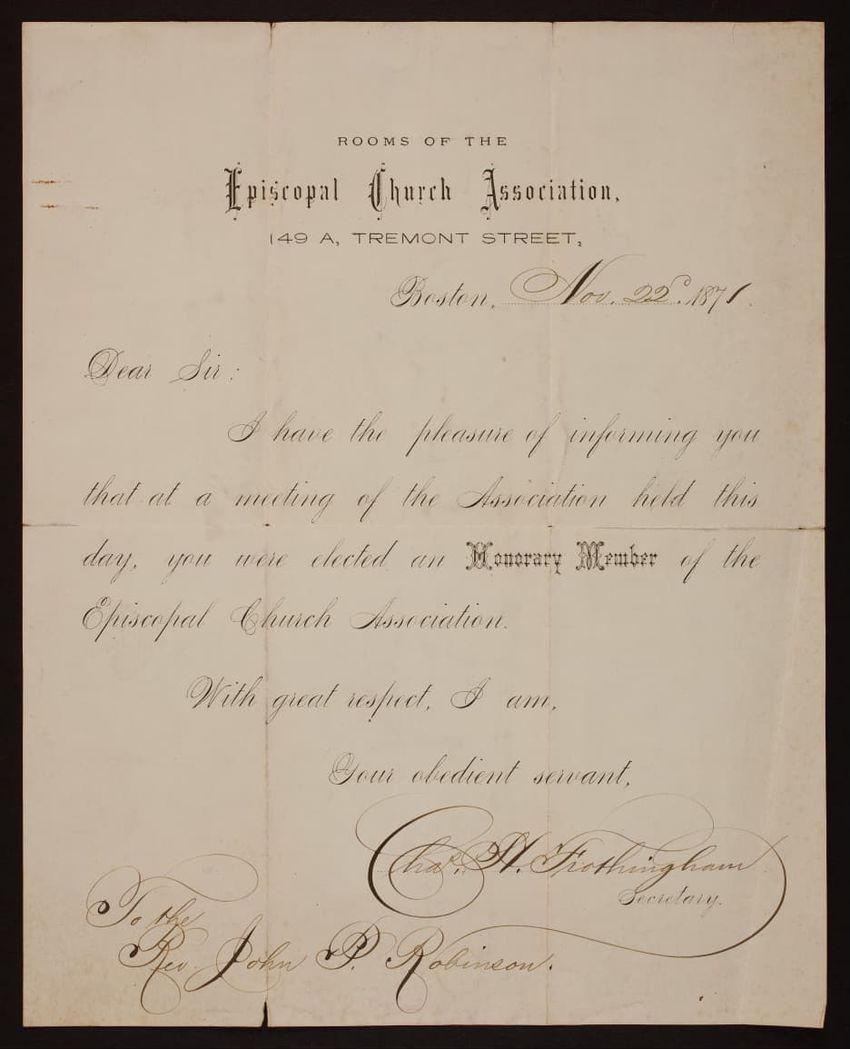 ROOMS OF THE
Episcopal Church Association,
149 A, TREMONT STREET,
Boston, Nov. 22d. 1871.
Dear Sir:
I have the pleasure of informing you
that at a meeting of the Association held this
day, you were elected an Honorary Member of the
Episcopal Church Association.
With great respect, I am,
Your obedient servant,
Chas. H. Frothingham
Secretary.
To the
Rev. John P. Robinson.